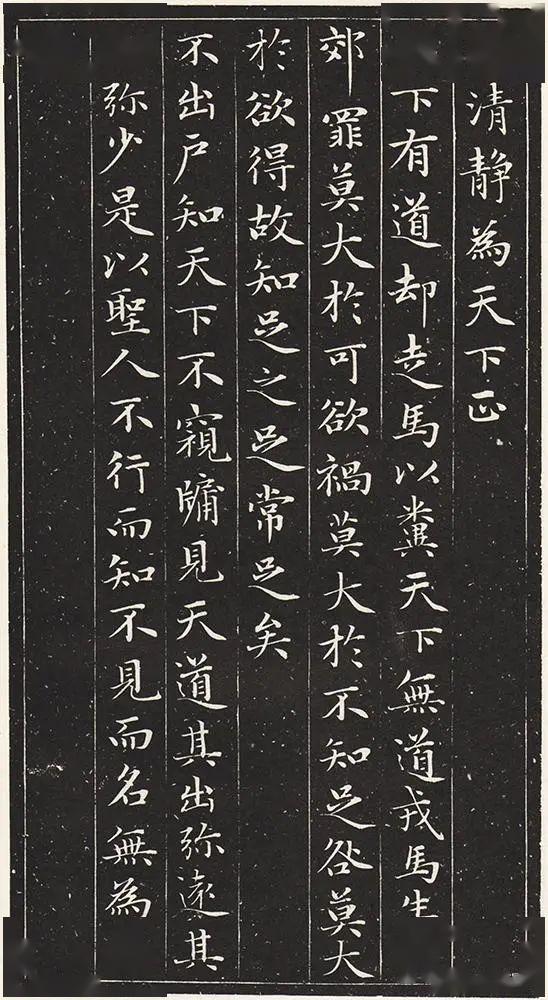 清静為天下正
下有道却走馬以糞天下無道戎馬生
郊罪莫大於可欲禍莫大於不知足咎莫大
於欲得故知足之足常足矣
不出戶知天下不窺牖見天道其出弥遠其
弥少是以聖人不行而知不見而名無為